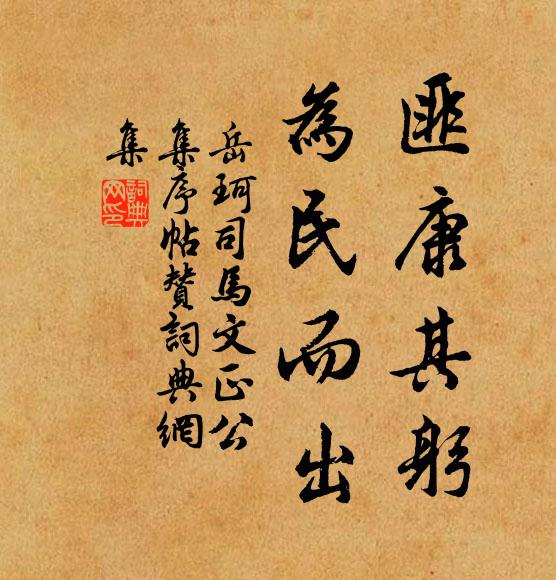 匪康其躬
為民而出
岳珂司馬文正公
集序帖贊詞典網
集
詞典
网印